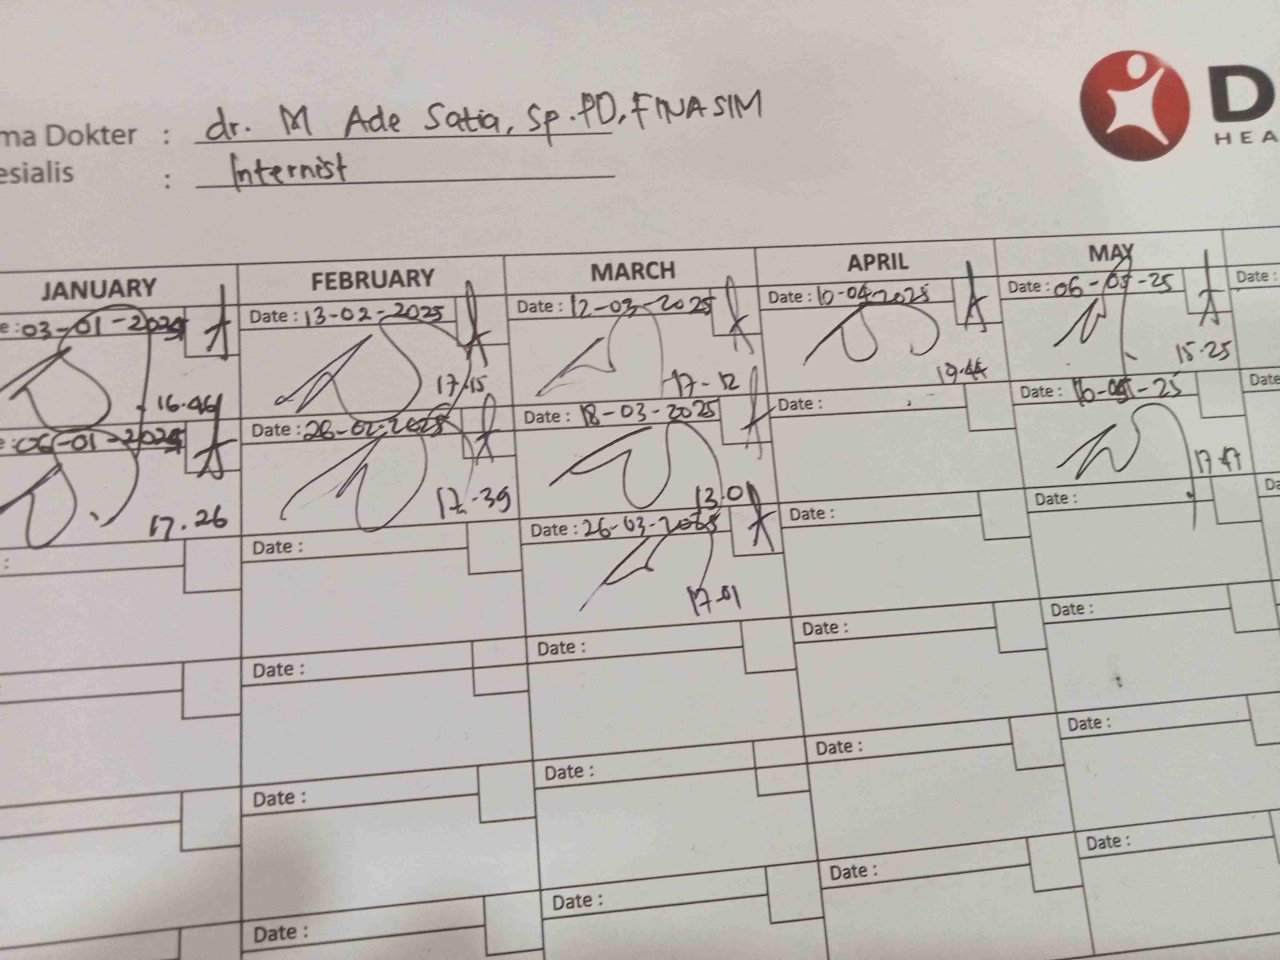 ma Dokter : dr. M Ade Satia, Sp.PD, FINASIM
esialis : Internist
D
HEA
JANUARY FEBRUARY MARCH APRIL MAY
e: 03-01-2025 Date : 13-02-2025 Date : 12-03-2025 Date : 10-04-2025 Date : 06-05-25 Date :
16.46 17.15 17-12 19.44 15.25
e: 06-01-2025 Date : 26-02-2025 Date : 18-03-2025 Date : Date : 16-05-25 Date
17.26 17.39 13.01 17.47
: Date : Date : 26-03-2025 Date : Date : Da
17.01
Date : Date : Date : Date :
Date : Date : Date : Date :
Date : Date : Date : Date :